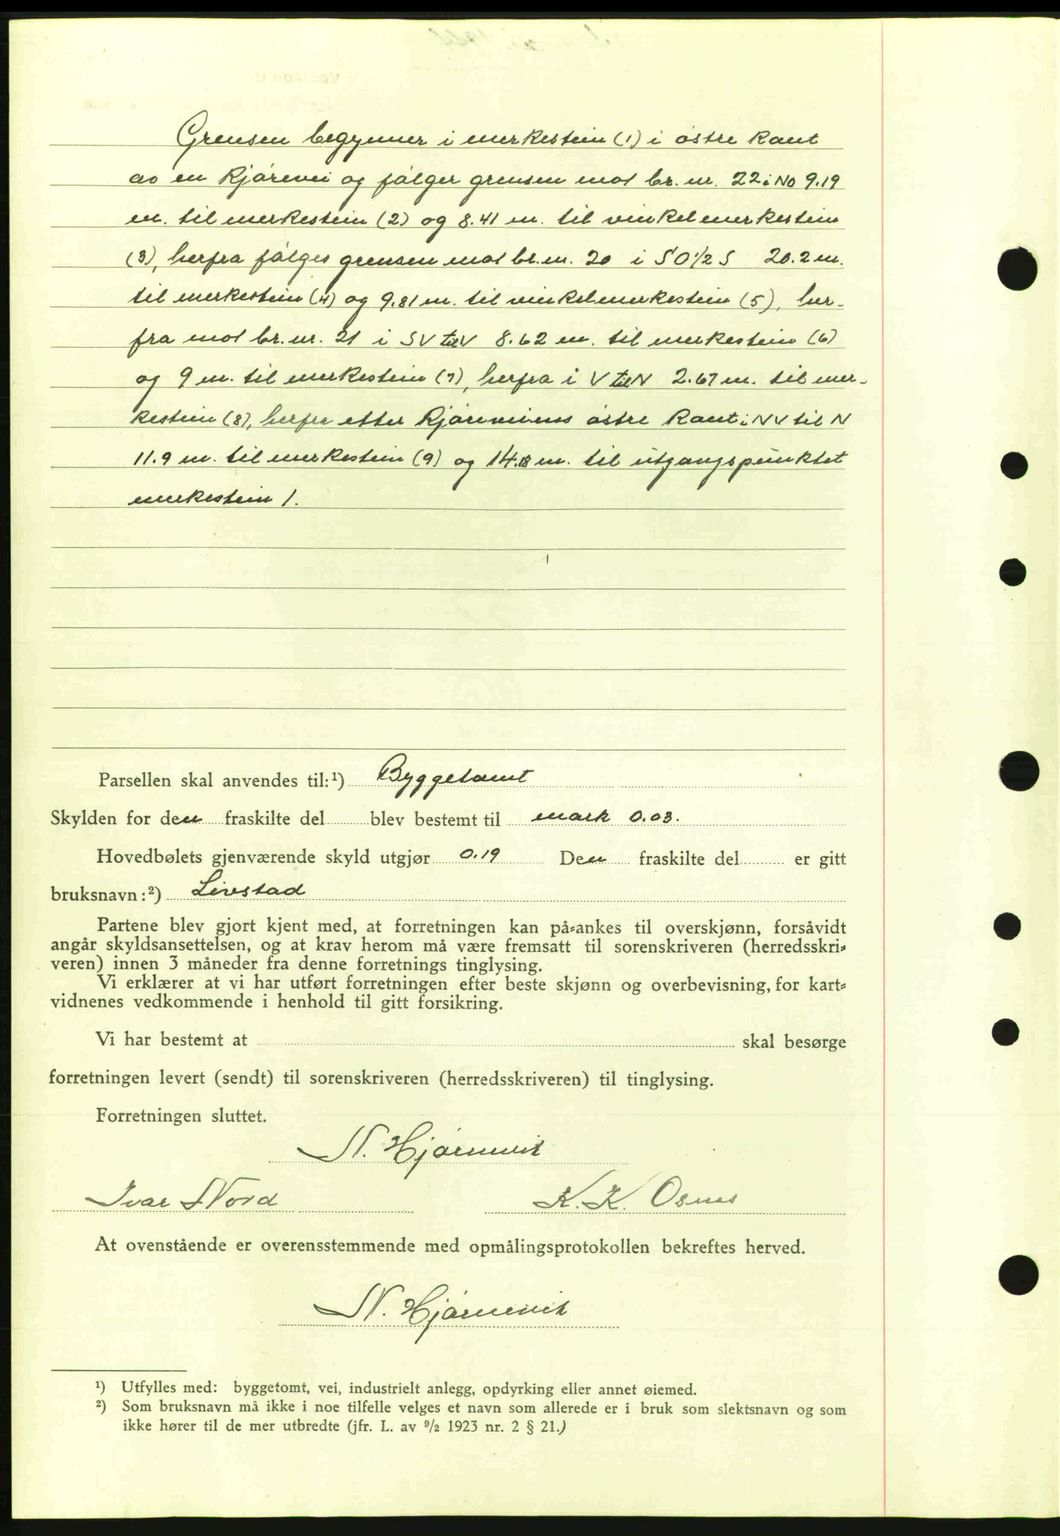 Grensen begynner i merkestein (1) i østre kant
av en kjørevei og følger grensen mot br. nr. 22 i NO 9.19
m. til merkestein (2) og 8.41 m. til vinkelmerkestein
(3), herfra følges grensen mot br. nr. 20 i SO 1/2 S 20.2 m.
til merkestein (4) og 9.81 m. til vinkelmerkestein (5), her-
fra mot br. nr. 21 i SV til V 8.62 m. til merkestein (6)
og 9 m. til merkestein (7), herfra i V til N 2.67 m. til mer-
kestein (8), herfra etter kjøreveiens østre kant i NV til N
11.9 m. til merkestein (9) og 14.8 m. til utgangspunktet
merkestein 1.
Parsellen skal anvendes til:¹) Byggetomt
Skylden for den fraskilte del blev bestemt til mark 0.03.
Hovedbølets gjenværende skyld utgjør 0.19 Den fraskilte del er gitt
bruksnavn:²) Livestad
Partene blev gjort kjent med, at forretningen kan på-ankes til overskjønn, forsåvidt
angår skyldsansettelsen, og at krav herom må være fremsatt til sorenskriveren (herredsskri-
veren) innen 3 måneder fra denne forretnings tinglysing.
Vi erklærer at vi har utført forretningen efter beste skjønn og overbevisning, for kart-
vidnenes vedkommende i henhold til gitt forsikring.
Vi har bestemt at skal besørge
forretningen levert (sendt) til sorenskriveren (herredsskriveren) til tinglysing.
Forretningen sluttet.
N. Hjørnevik
Ivar Nord K. K. Osnes
At ovenstående er overensstemmende med opmålingsprotokollen bekreftes herved.
N. Hjørnevik
¹) Utfylles med: byggetomt, vei, industrielt anlegg, opdyrking eller annet øiemed.
²) Som bruksnavn må ikke i noe tilfelle velges et navn som allerede er i bruk som slektsnavn og som
ikke hører til de mer utbredte (jfr. L. av ⁹/₂ 1923 nr. 2 § 21.)